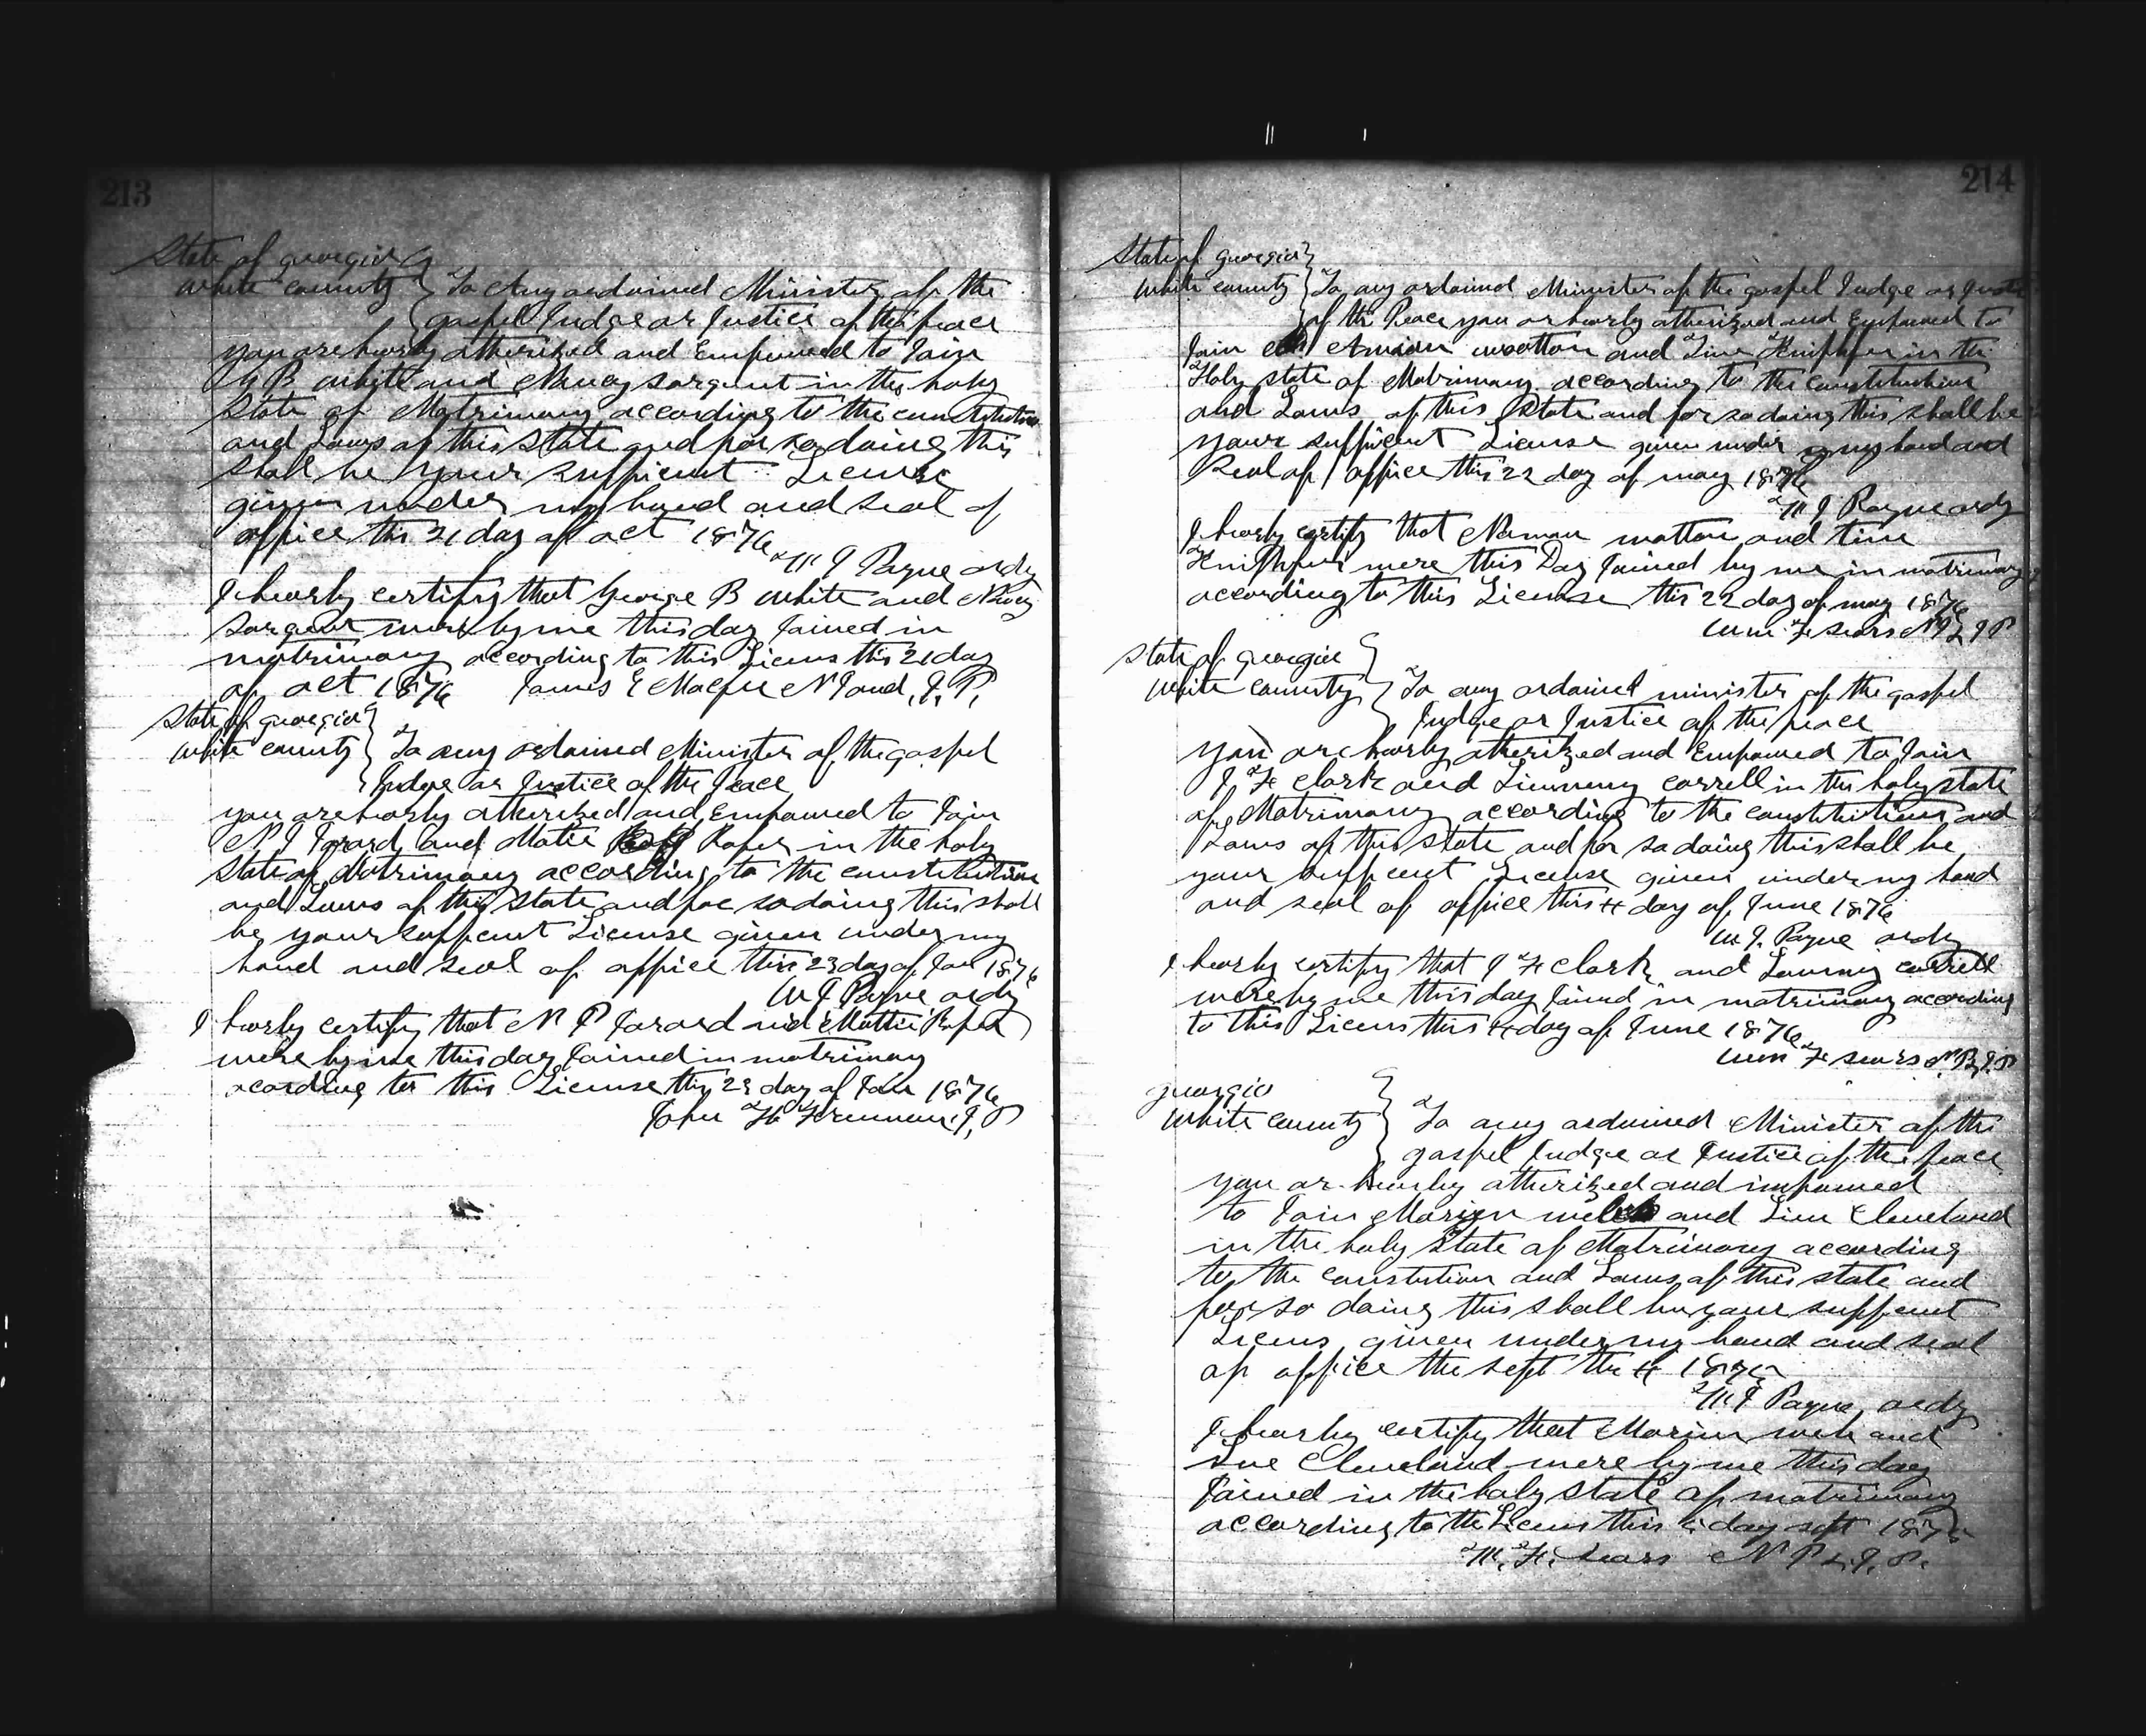 213
State of georgia
White county } To Any ordained Minister of the
gospel Judge or Justice of the peace
you are hearby atherized and Empowed to Join
G B White and Nancy Sargent in the holy
State of Matrimony according to the constitution
and Laws of this State and for so doing this
shall be your sufficient License
given under my hand and seal of
office this 21 day of oct 1876
W J Payne ordy
I hearby certify that George B White and Nancy
Sargent were by me this day Joined in
matrimony according to this Licens this 21 day
of oct 1876 James E N P and J. P.
State of georgia
White county } To any ordained Minister of the gospel
Judge or Justice of the Peace
you are hearby atherized and Empowed to Join
and Matie Roper in the holy
State of Matrimony according to the constitution
and Laws of this State and for so doing this shall
be your sufficent License given under my
hand and seal of office this 23 day of Jan 1876
W J Payne ordy
I hearby certify that N P and Mattie Roper
were by me this day Joined in matrimony
acording to this License this 23 day of Jan 1876
John J. P
214
State of georgia
White county } To any ordained Minister of the gospel Judge or Justice
of the Peace you ar hearby atherized and Empowed to
Join wootton and in the
Holy state of Matrimony according to the constitution
and Laws of this State and for so doing this shall be
your sufficient License given under my hand and
Seal of office this 22 day of may 1876
W J Payne ordy
I hearby certify that and
were this Day Joined by me in matrimony
according to this License this 22 day of may 1876
Wm F Sears N P & J P
State of georgia
White county } To any ordained minister of the gospel
Judge or Justice of the peace
you are hearby atherized and Empowed to Join
J F Clark and correll in the holy state
of Matrimony according to the constitution and
Laws of this State and for so doing this shall be
your sufficent License given under my hand
and seal of office this 4 day of June 1876
W J. Payne ordy
I hearby certify that J F Clark and correll
were by me this day Joined in matrimony according
to this Licens this 4 day of June 1876
Wm F Sears N. P. & J. P
georgia
White county } To any ordained Minister of the
gospel Judge or Justice of the peace
you ar hearby atherized and impowed
to Join Marion welch and Cleveland
in the holy State of Matrimony according
to the constution and Laws of this state and
for so doing this shall be your sufficent
Licens given under my hand and seal
of office the sept the 4 187
W J Payne ordy
I hearby certify that Marion and
Cleveland were by me this day
Joined in the holy state of matrimony
according to the Licens this day sept 187
W. F. Sears N P & J. P.